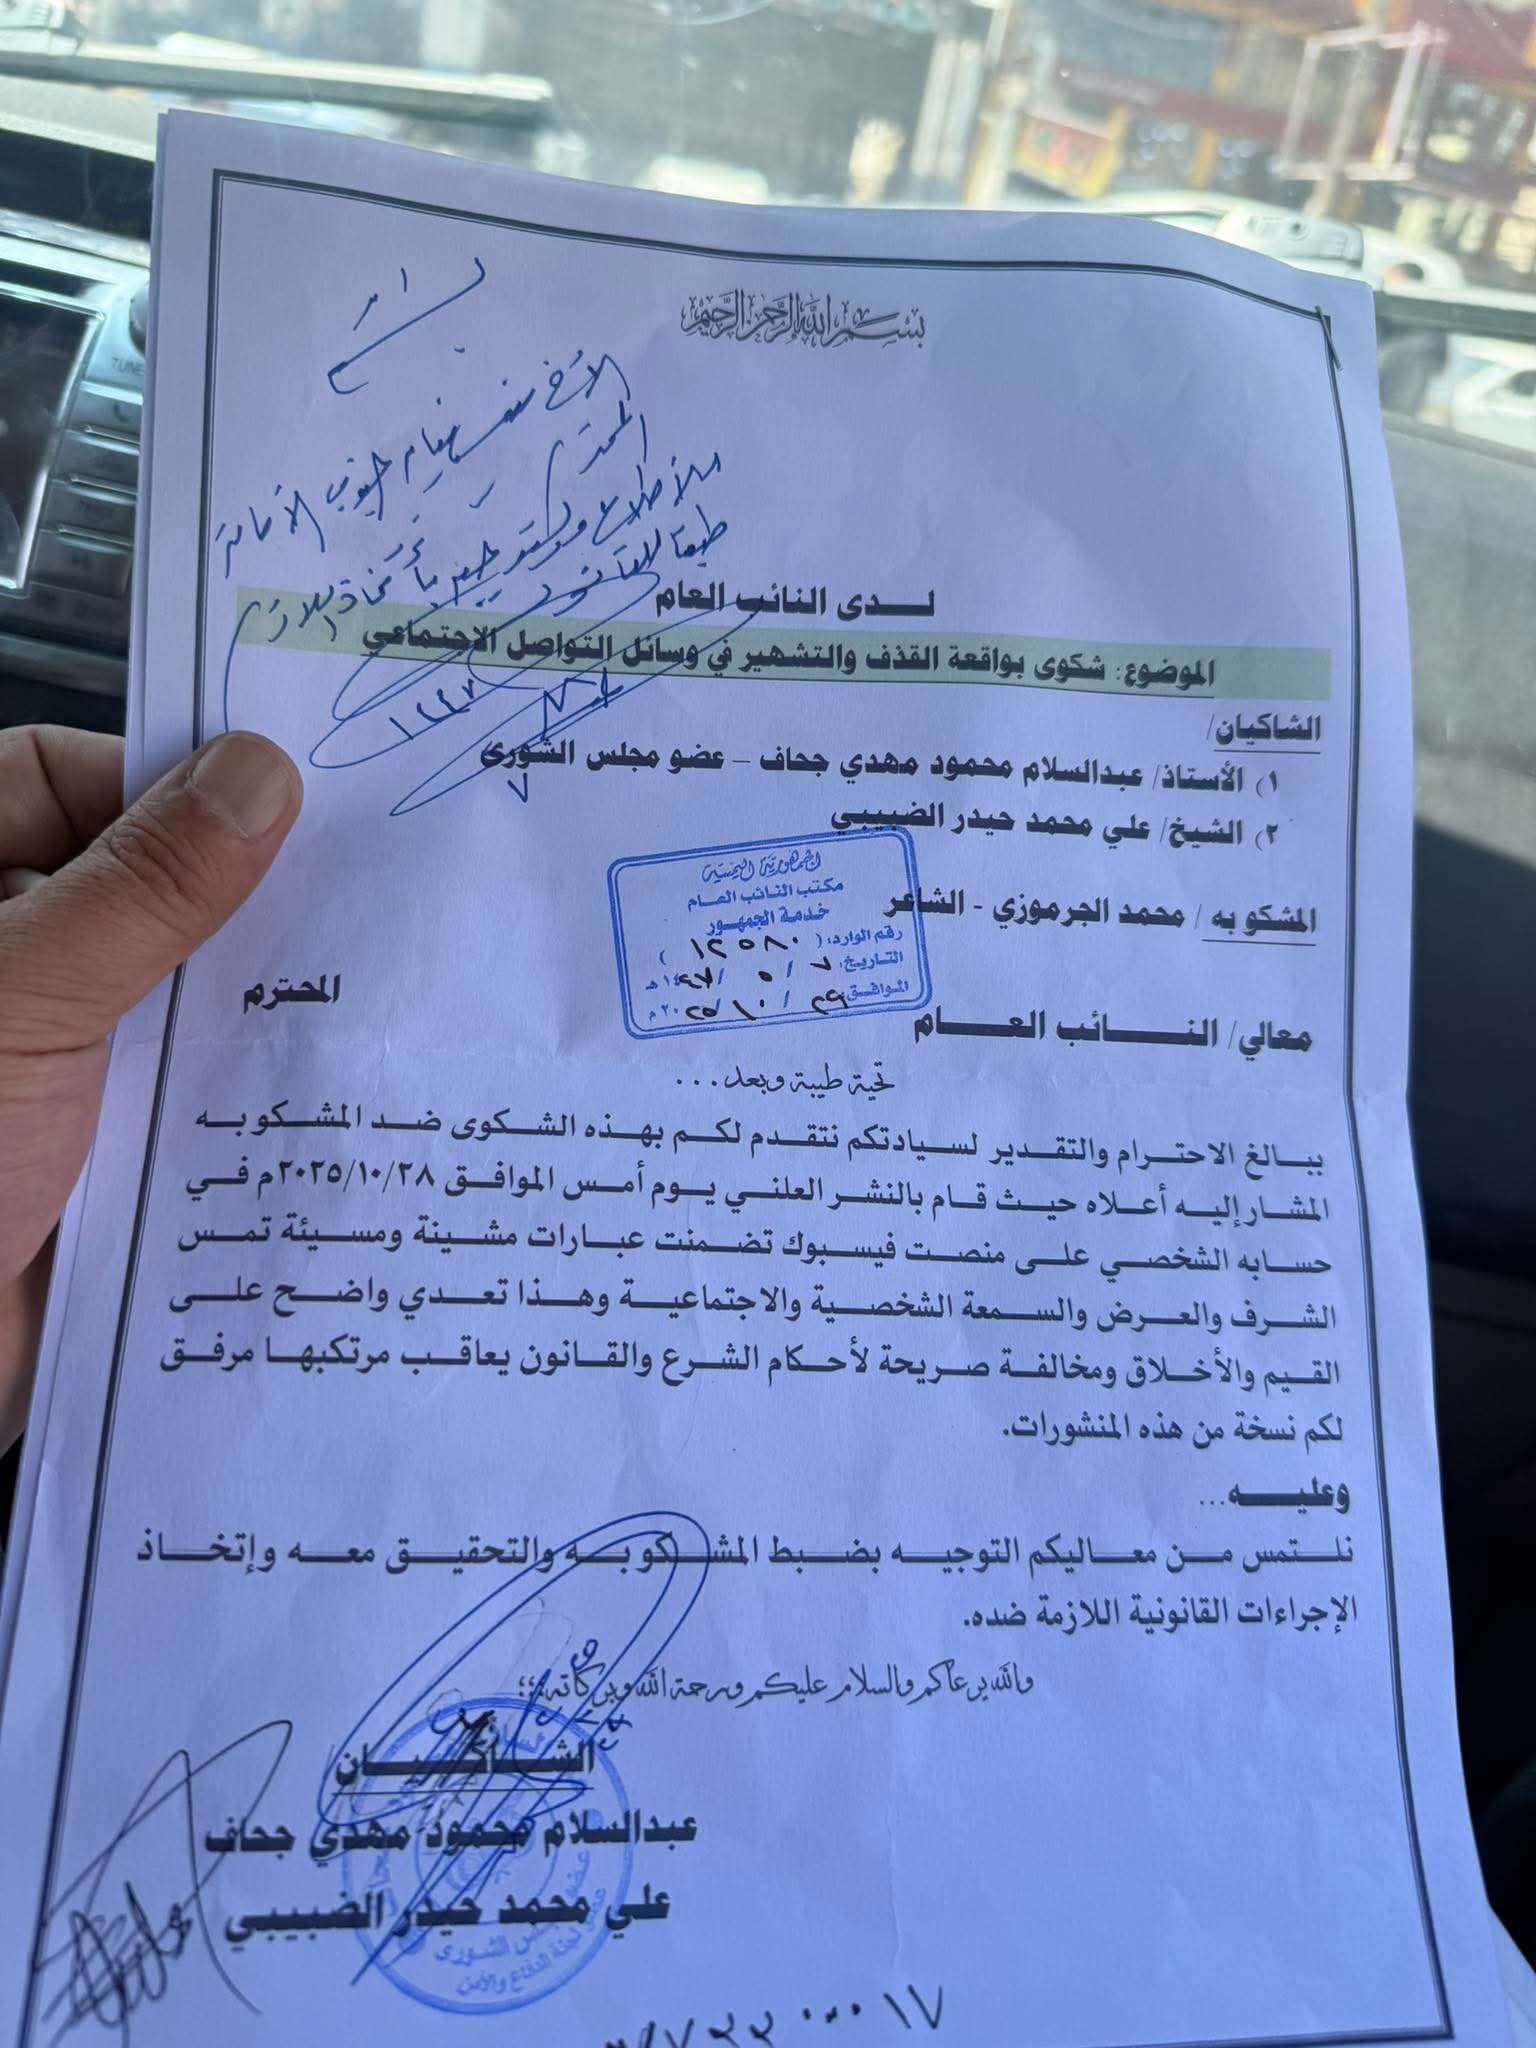 بسم الله الرحمن الرحيم
الأخ
المحترم
للأطلاع و
طبقا للقانون
١٤٤٧
٧
لـــدى النائب العام
الموضوع: شكوى بواقعة القذف والتشهير في وسائل التواصل الاجتماعي
الشاكيان/
١) الأستاذ/ عبدالسلام محمود مهدي جحاف – عضو مجلس الشورى
٢) الشيخ/ علي محمد حيدر الضبيبي
المشكو به / محمد الجرموزي - الشاعر
الجمهورية اليمنية
مكتب النائب العام
خدمة الجمهور
رقم الوارد: ( ١٢٥٨٠ )
التاريخ: ٧ / ٥ / ١٤٤٧هـ
الموافق: ٢٩ / ١٠ / ٢٠٢٥م
معالي/ النـــائب العـــام المحترم
تحية طيبة وبعد...
ببالغ الاحترام والتقدير لسيادتكم نتقدم لكم بهذه الشكوى ضد المشكو به
المشار إليه أعلاه حيث قام بالنشر العلني يوم أمس الموافق ٢٠٢٥/١٠/٢٨م في
حسابه الشخصي على منصت فيسبوك تضمنت عبارات مشينة ومسيئة تمس
الشرف والعرض والسمعة الشخصية والاجتماعية وهذا تعدي واضح على
القيم والأخلاق ومخالفة صريحة لأحكام الشرع والقانون يعاقب مرتكبها مرفق
لكم نسخة من هذه المنشورات.
وعليـــه...
نلتمس من معاليكم التوجيه بضبط المشكو به والتحقيق معه وإتخاذ
الإجراءات القانونية اللازمة ضده.
والله يرعاكم والسلام عليكم ورحمة الله وبركاته؛؛؛
الشـاكـيـان
عبدالسلام محمود مهدي جحاف
علي محمد حيدر الضبيبي
عضو مجلس الشورى
عضو لجنة الدفاع والأمن